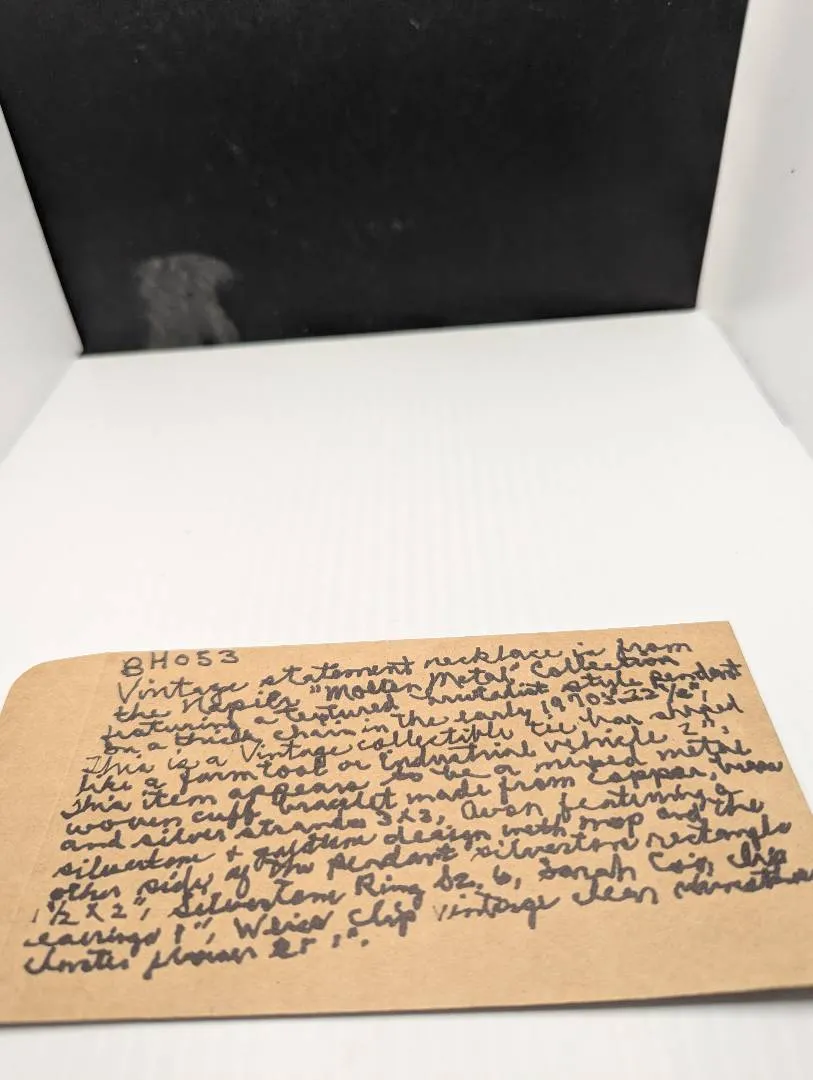 BH053
Vintage statement necklace is from
the Napier "Molten Metal" Collection
featuring a textured brutalist style Pendant
on a thick chain in the early 1970s 22
This is a Vintage collectible tie bar shaped
like a farm tool or industrial vehicle 2",
This item appears to be a mixed metal
woven cuff bracelet made from Copper, brass
and silver strands 3x3, Avon featuring a
silvertone + design with mop and the
other side of the Pendant silvertone rectangle
1½ x 2", Silvertone Ring Sz, 6, Sarah Cov, Clip
earrings 1", Weiss Clip vintage clear
flower er 1".